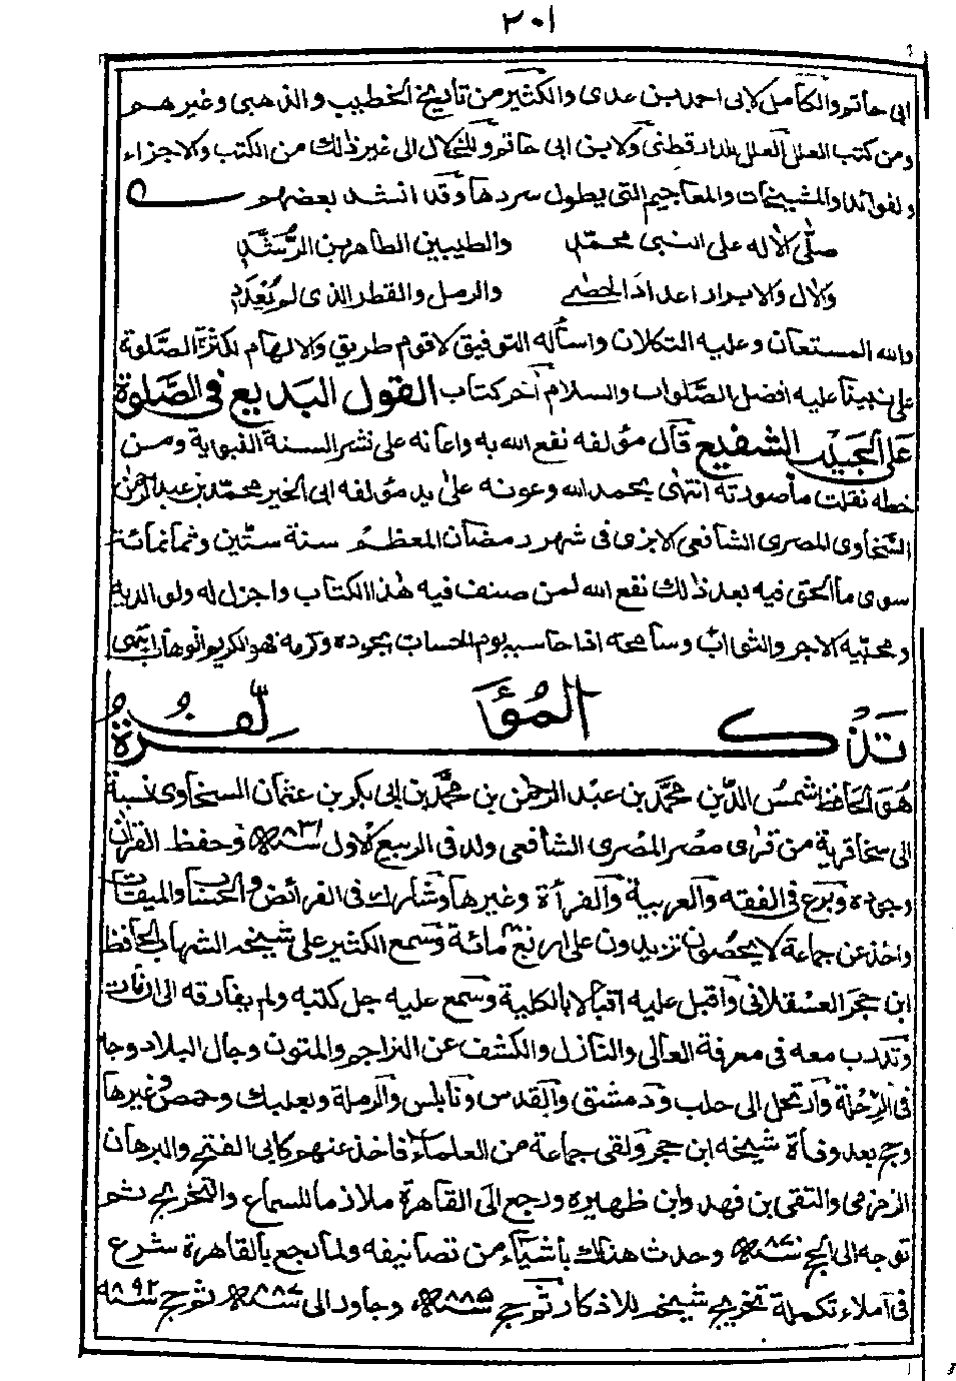 ٢٠١
ابى حاتم والكامل لابى احمد بن عدى والكثير من تاريخ الخطيب والذهبى وغيرهم
ومن كتب العلل العلل للدارقطنى ولابن ابى حاتم وللخلال الى غير ذلك من الكتب والاجزاء
والفوائد والمشيخات والمعاجيم التى يطول سردها وقد انشد بعضهم
صلّى الاله على النبى محمّد والطيبين الطاهرين الرُّشَّدِ
والال والابرار اعداد الحصٰى والرمل والقطر الذى لم يُعْدَدِ
والله المستعان وعليه التكلان واسأله التوفيق لاقوم طريق والالهام لكثرة الصَّلوة
على نبينا عليه افضل الصَّلوات والسلام آخر كتاب القول البديع فى الصَّلوة
على الحبيب الشفيع قال مؤلفه نفع الله به واعانه على نشر السنة النبوية ومن
خطه نقلت ما صورته انتهى بحمد الله وعونه على يد مؤلفه ابى الخير محمّد بن عبد الرحمٰن
السّخاوى المصرى الشافعى الاثرى فى شهر رمضان المعظم سنة ستّين وثمانمائة
سوى ما الحق فيه بعد ذلك نفع الله لمن صنف فيه هذا الكتاب واجزل له ولوالديه
ومحبّيه الاجر والثواب وسامحه اذا حاسبه يوم الحساب بجوده وكرمه فهو الكريم الوهاب انتهى
تذكرة المؤلف
هُوَ الحَافظ شمسُ الدّين محمَّد بن عبد الرحمٰن بن محمَّد بن ابى بكر بن عثمان السخاوى نسبة
الى سخا قرية من قرى مصر المصرى الشافعى ولد فى الربيع الاول سنة ٨٣١ وحفظ القرآن
وجوده وبرع فى الفقه والعربية والقرأة وغيرها وشارك فى الفرائض والحساب والميقات
واخذ عن جماعة لا يحصون تزيدون على اربع مائة وسمع الكثير على شيخه الشهاب الحافظ
ابن حجر العسقلانى واقبل عليه اقبالا بالكلية وسمع عليه جل كتبه ولم يفارقه الى ان مات
وتدرب معه فى معرفة العالى والنازل والكشف عن التراجم والمتون وجال البلاد وجد
فى الرّحلة وارتحل الى حلب ودمشق والقدس ونابلس والرملة وبعلبك وحمص وغيرها
وحج بعد وفاة شيخه ابن حجر ولقى جماعة من العلماء فاخذ عنهم كابى الفتح والبرهان
الزمزمى والتقى بن فهد وابن ظهيره ورجع الى القاهرة ملازما للسماع والتخريج ثم
توجه الى الحج سنة ٨٧٠ وحدث هناك بأشياء من تصانيفه ولما رجع بالقاهرة شرع
فى املاء تكملة تخريج شيخه للاذكار ثم حج سنة ٨٨٥ وجاور الى سنة ٨٨٧ ثم حج سنة ٨٩٢